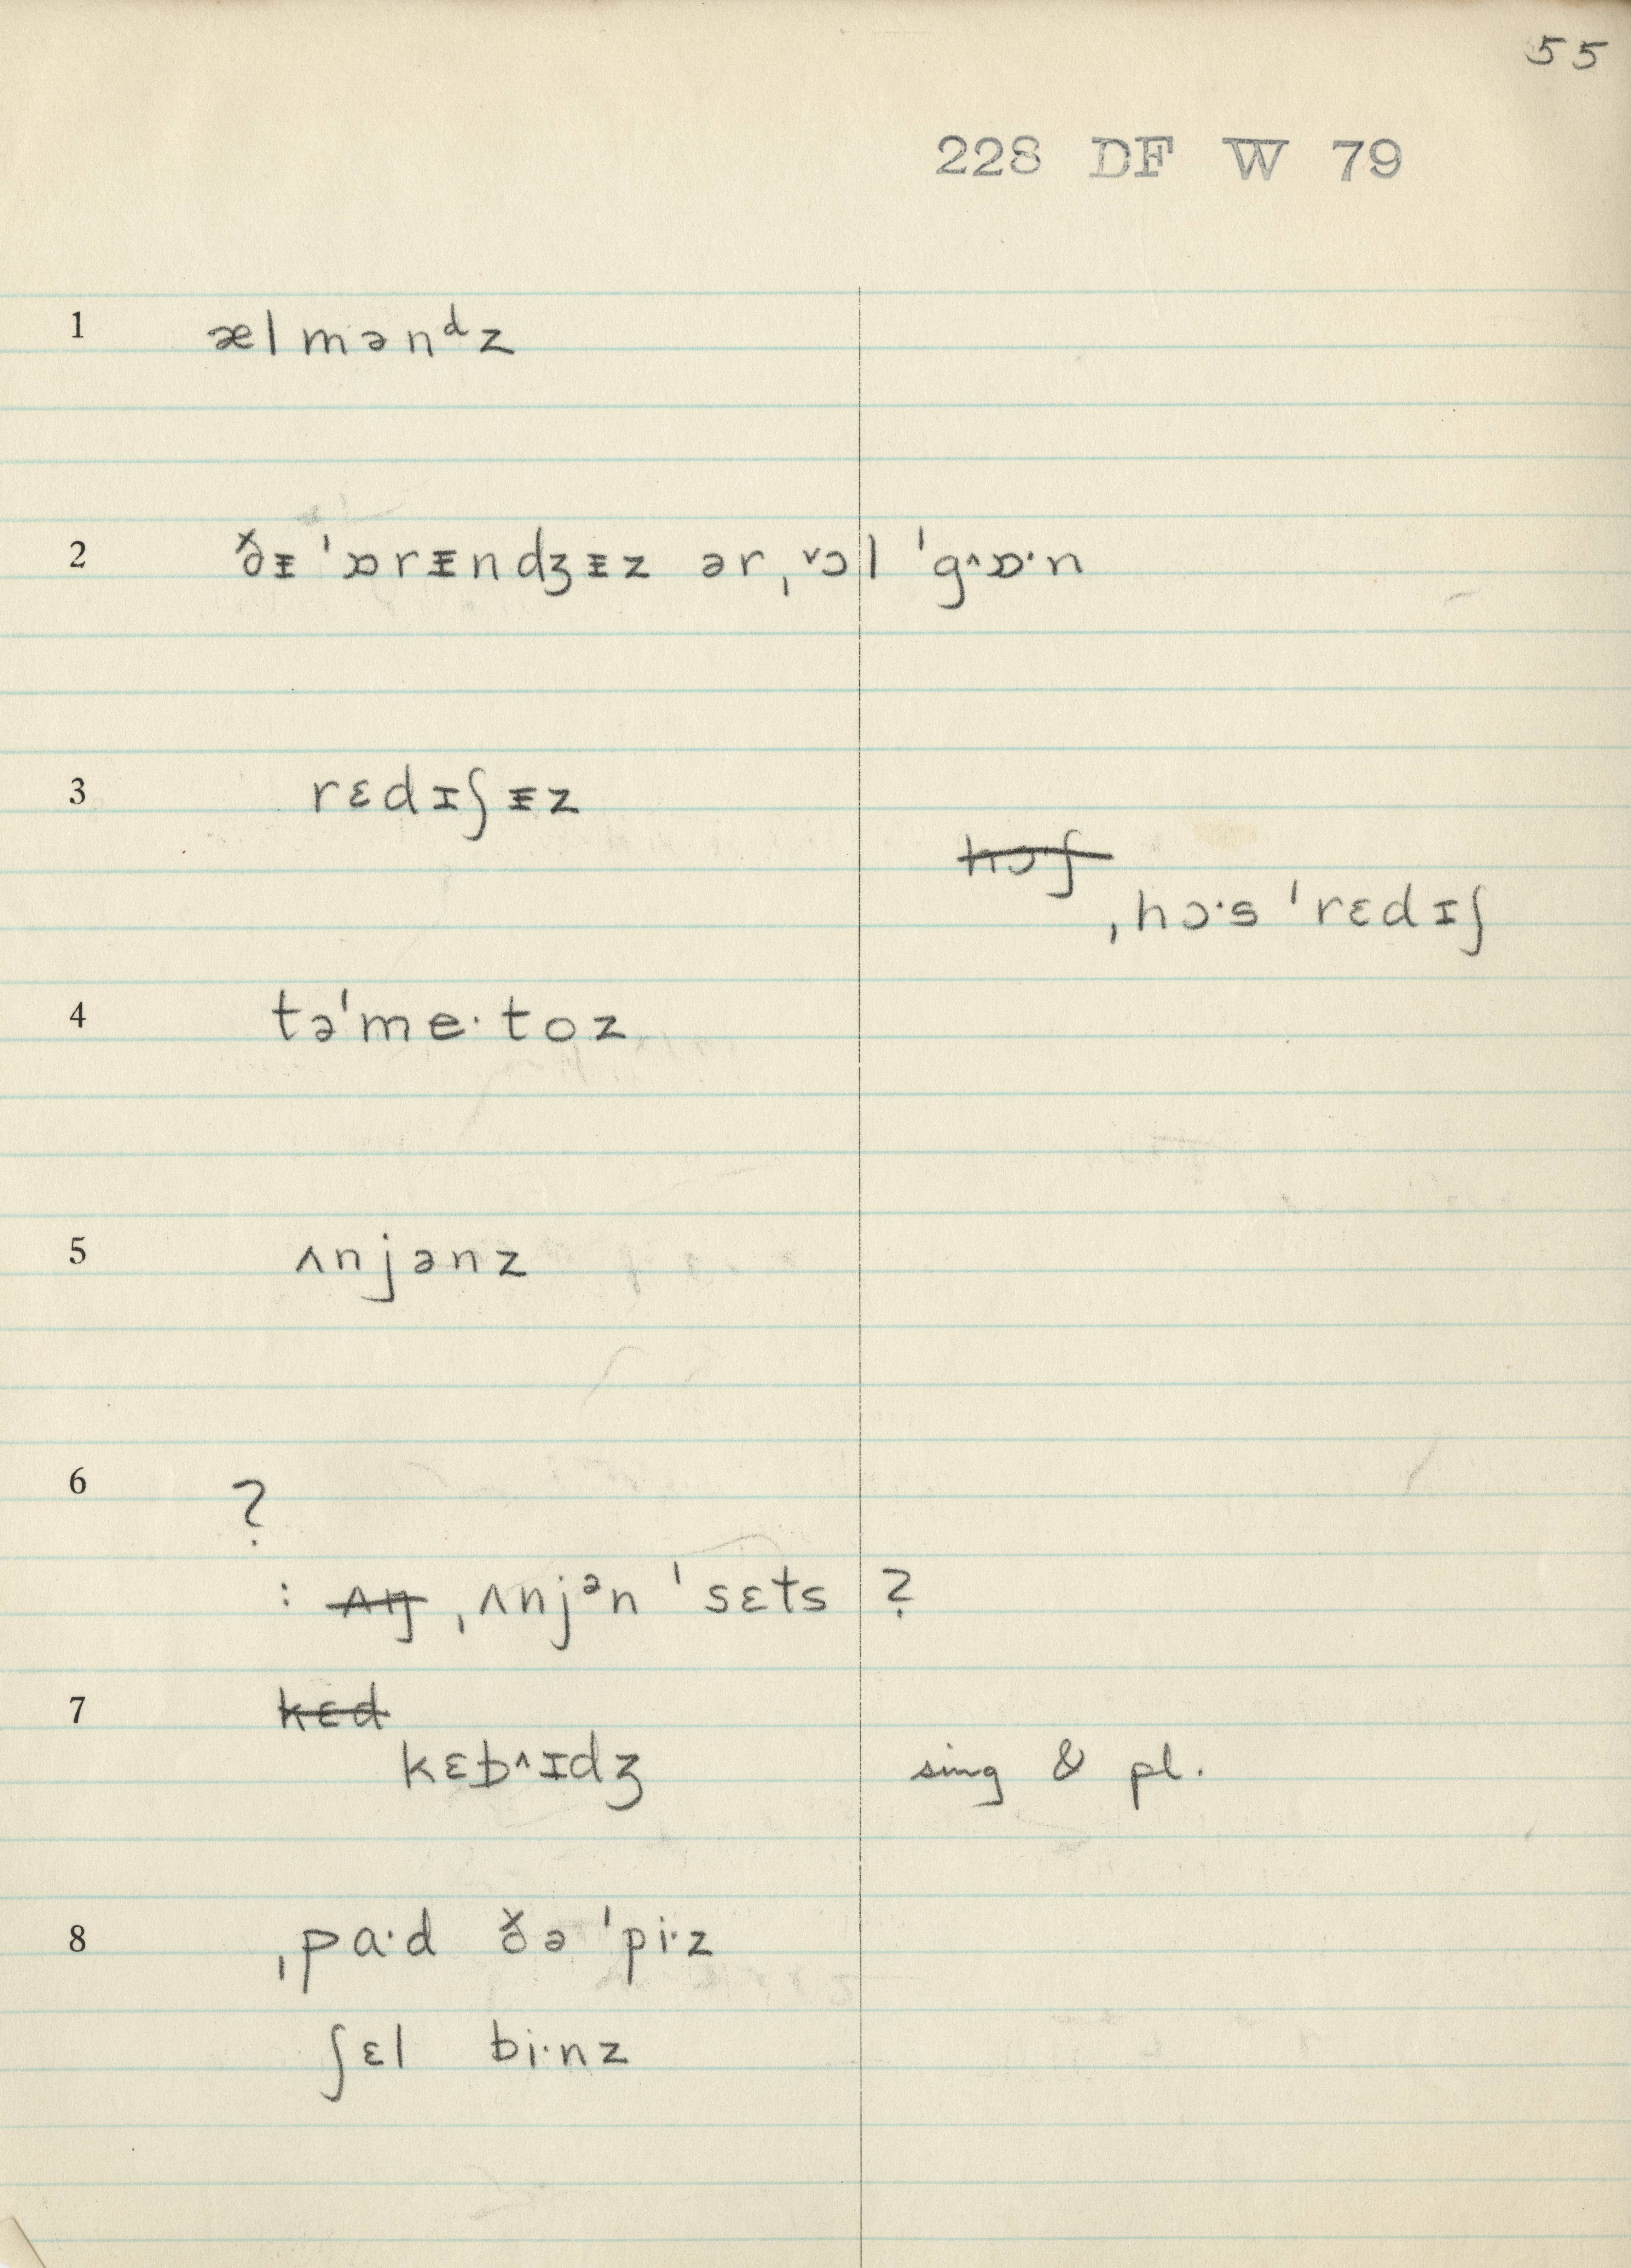 55
228 DF W 79
1 ælmənᵈz
2 ðᵻ ˈɒrᵻndʒᵻz ər ˌ˅ɔl ˈg^ɒ·n
3 rɛdɪʃᵻz
~~hɔʃ~~
ˌhɔ·s ˈrɛdɪʃ
4 təˈme·toz
5 ʌnjənz
6 ?
: ~~ʌŋ~~ ˌʌnjᵊn ˈsɛts ?
7 ~~kɛd~~
kɛb^ɪdʒ sing & pl.
8 ˌpa·d ðə ˈpi·z
ʃɛl bi·nz